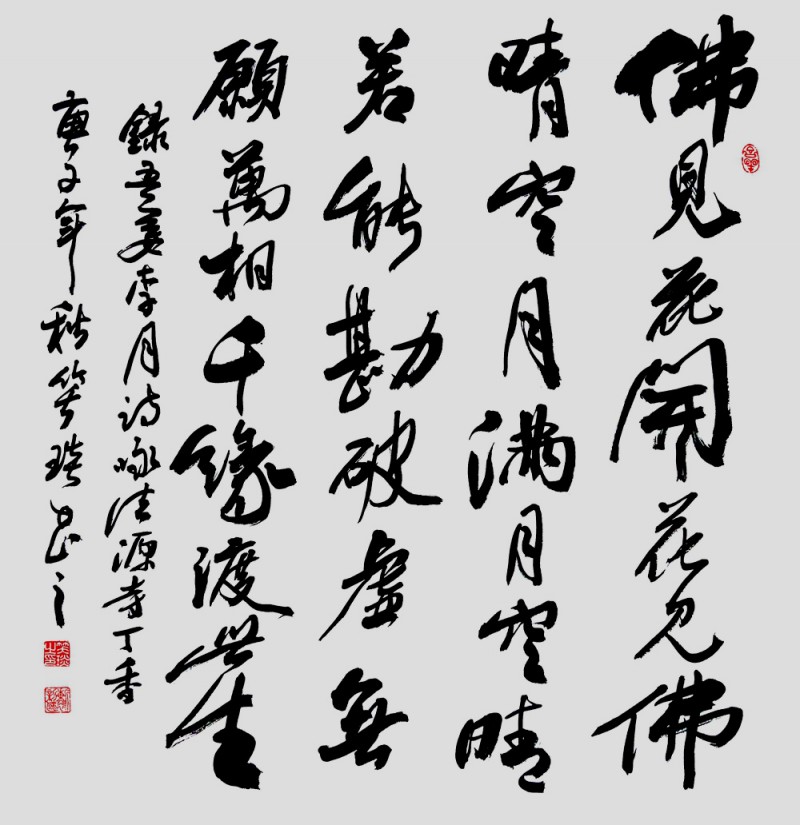 佛見花開花見佛
晴空月滿月空晴
若能勘破虛無
願萬相千緣渡此生
錄吾妻李月詩咏法源寺丁香
庚子年秋笑琰書之